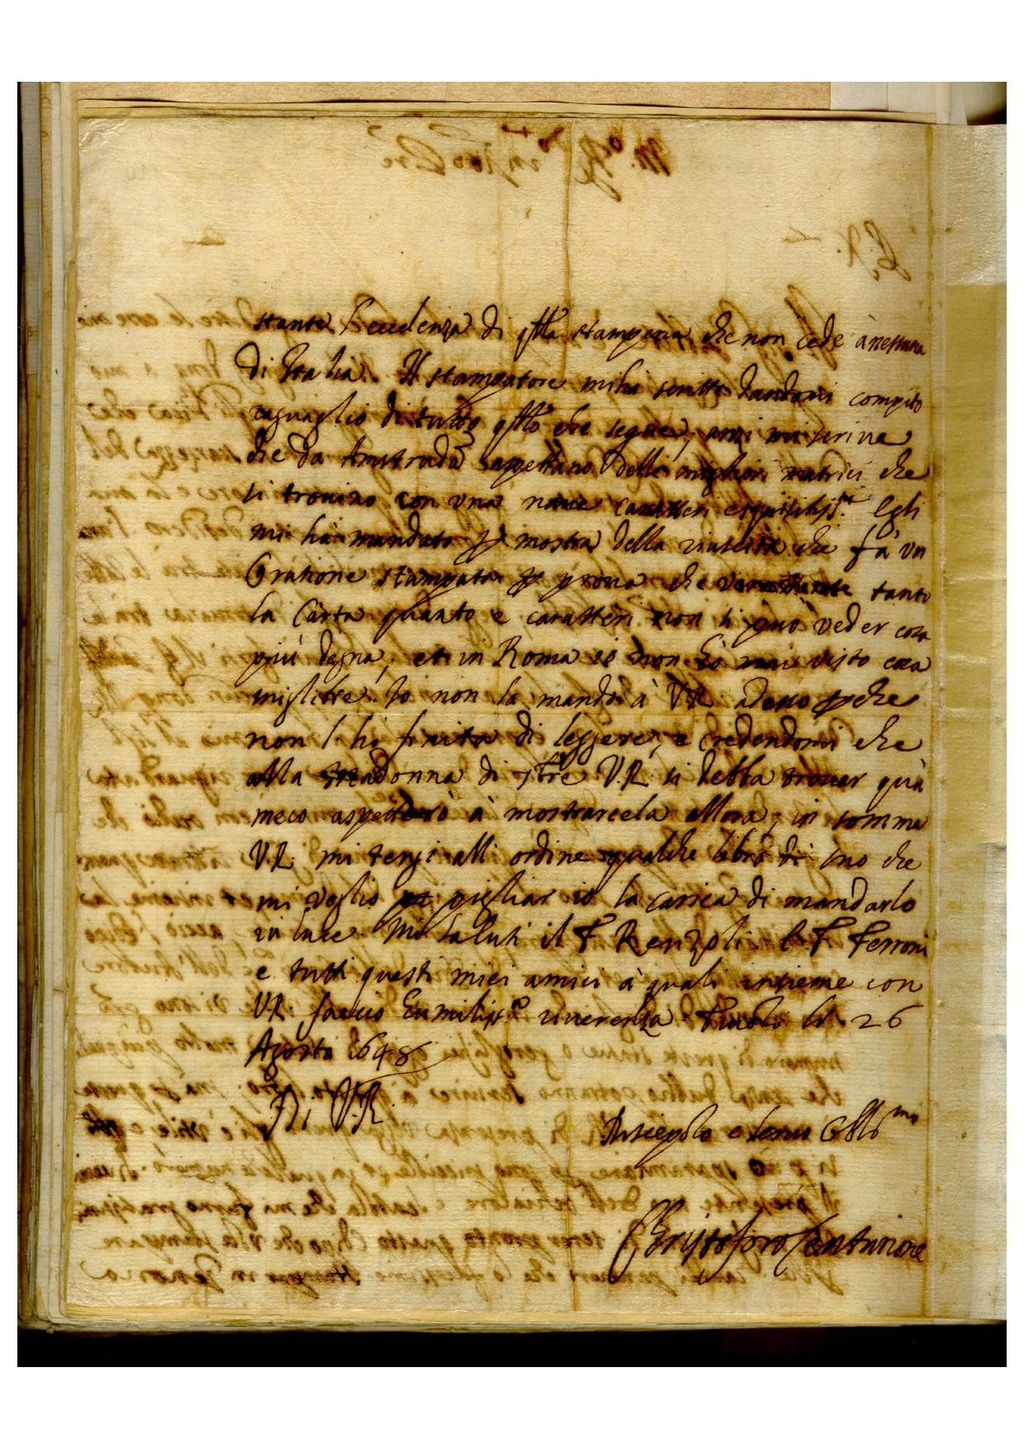 stante l'eccelenza di qsta stamperia che non cede à nessuna
di Italia. Il stampatore mi hà scritto dandomi compito
raguaglio di tutto qsto che segue, anzi mi scrive
che da Amstradã aspettano delle migliori matrici che
si trovino con una nave caratteri esquisitiss.mi Egli
mi hà mandato p mostra della riuscita che fà un
Oratione stampata p prova che veramente tanto
la Carta quanto e caratteri non si può veder cosa
più degna, et in Roma io non hò mai visto cosa
migliore. Io non la mando à V.R. adesso pche
non l'hò finita di leggere, e credendomi che
alla Madonna di 7bre V.R. si debba trovar quà
meco aspetterò à mostrarcela allora, in somma
V.R. mi tenga all' ordine qualche libro di suo che
mi voglio pigliar io la carica di mandarlo
in luce. Mi saluti il P Renzoli e P Ferroni
e tutti questi miei amici à quali insieme con
V.R. faccio humiliss.a riverenza li 26
Agosto 1648
Di V.R.
Discepolo e servo Obblo mo
Christoforo Centurione